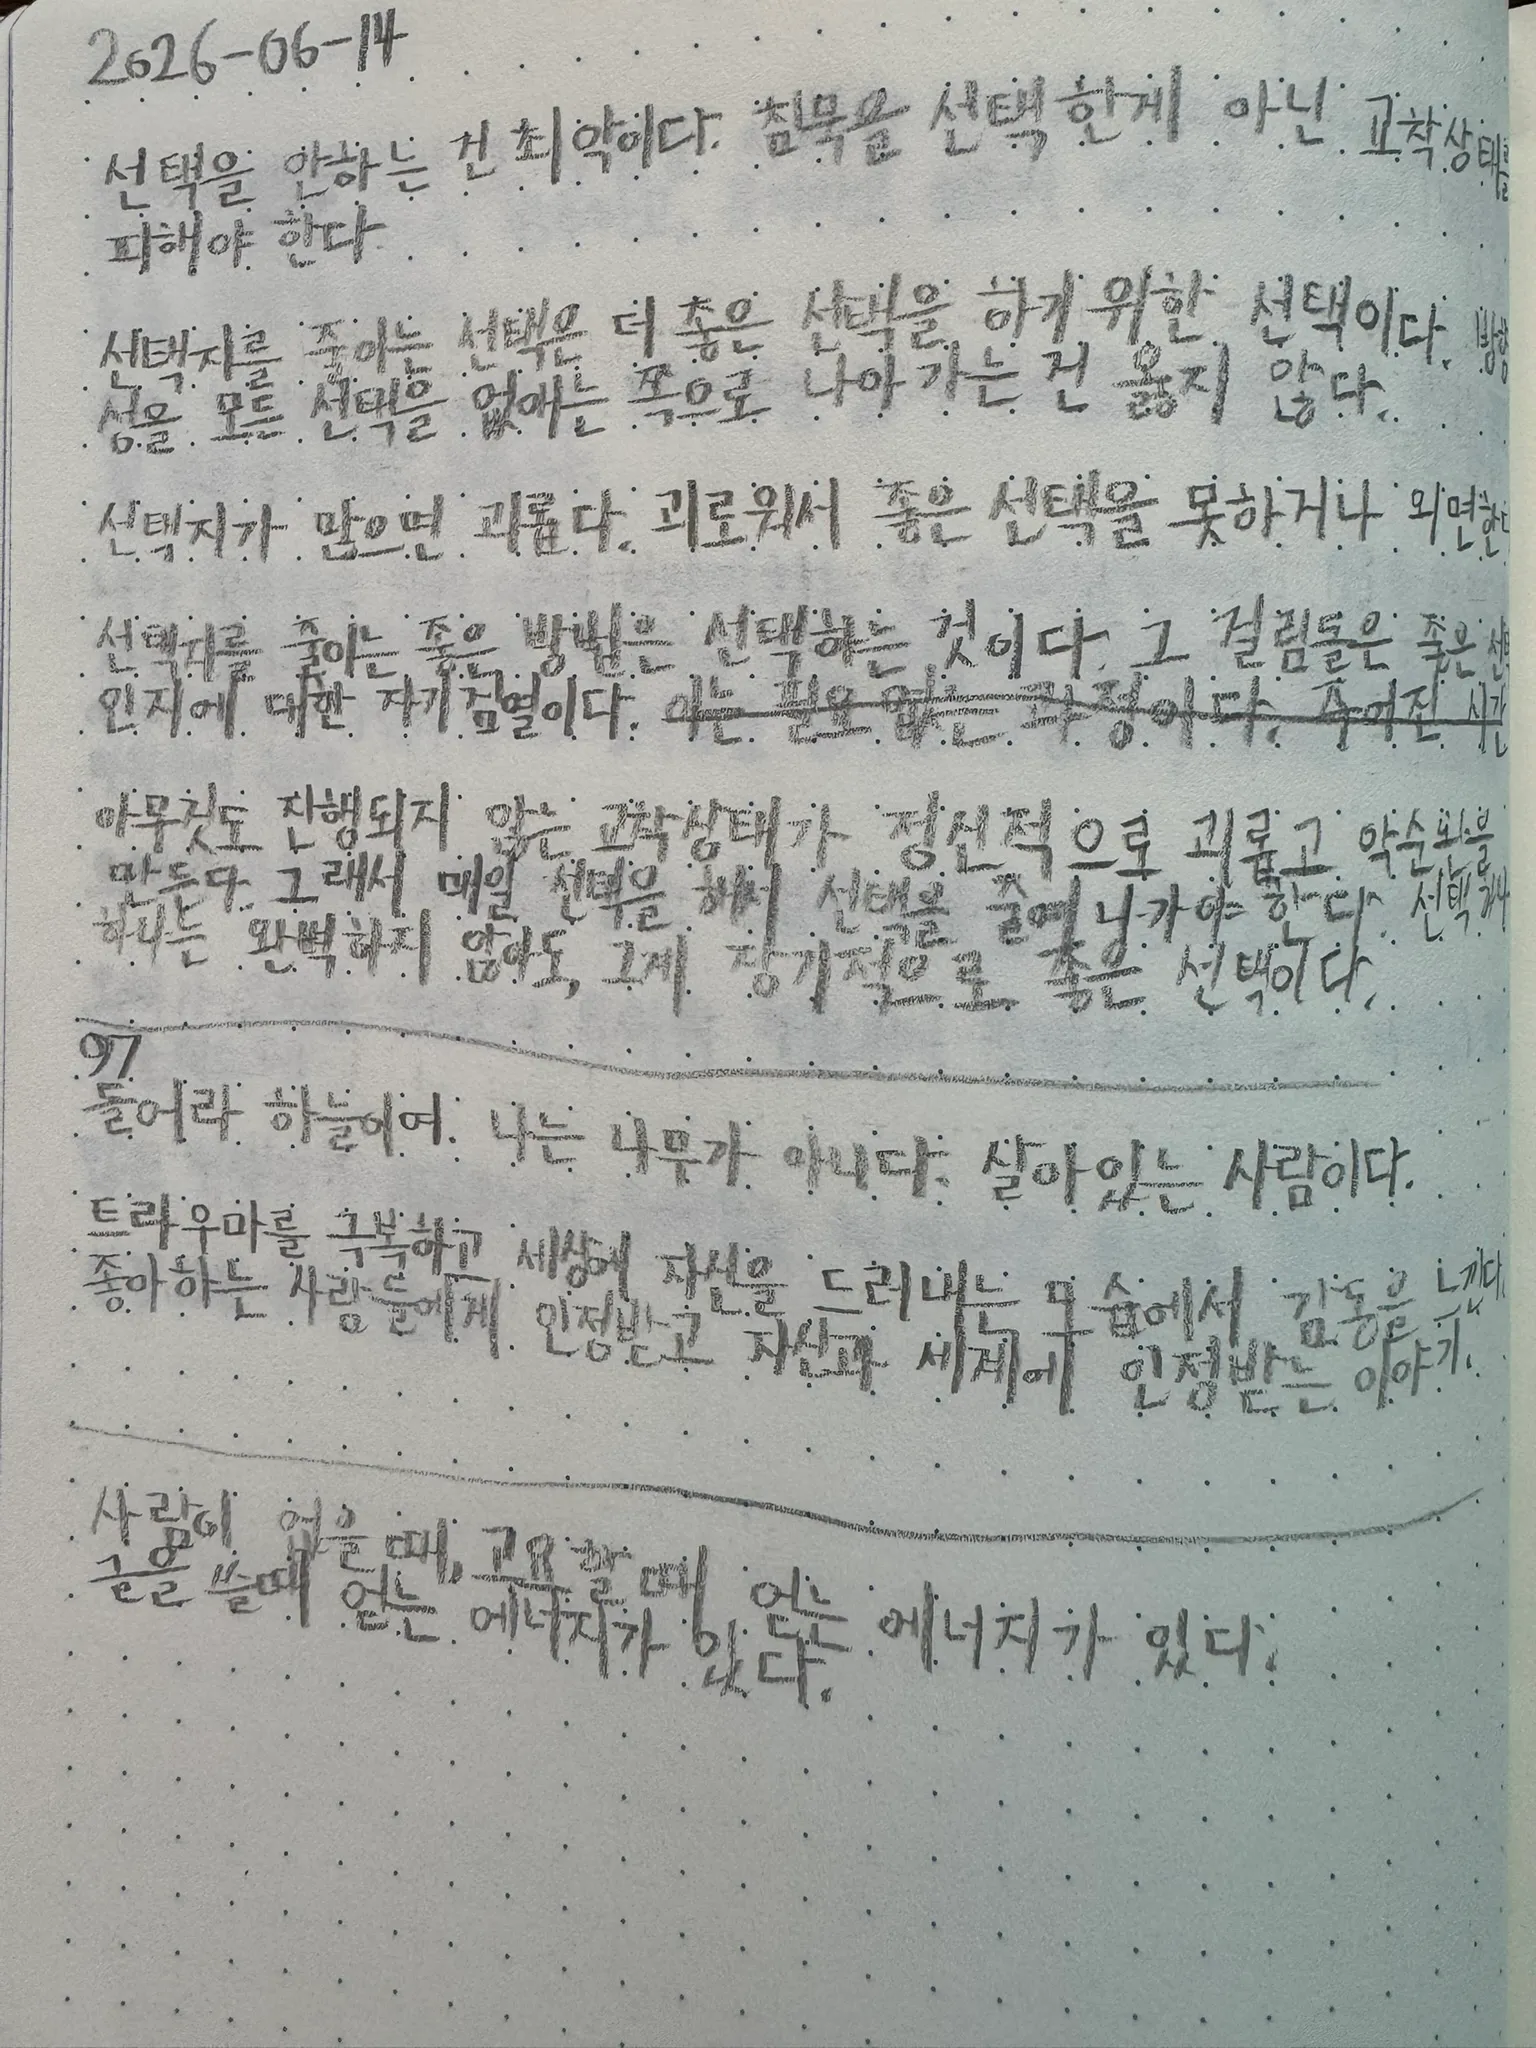 2026-06-14
선택을 안하는 건 최악이다. 침묵을 선택한게 아닌 교착상태를
피해야 한다.
선택지를 줄이는 선택은 더 좋은 선택을 하기 위한 선택이다. 방향
성을 모든 선택을 없애는 쪽으로 나아가는 건 옳지 않다.
선택지가 많으면 괴롭다. 괴로워서 좋은 선택을 못하거나 외면한다
선택지를 줄이는 좋은 방법은 선택하는 것이다. 그 걸림돌은 좋은 선택
인지에 대한 자기검열이다. 이는 필요 없는 과정이다. 주어진 시간
아무것도 진행되지 않는 교착상태가 정신적으로 괴롭고 악순환을
만든다. 그래서 매일 선택을 해서 선택을 줄여나가야 한다. 선택
하나는 완벽하지 않아도, 그게 장기적으로 좋은 선택이다.
97
들어라 하늘이여. 나는 나무가 아니다. 살아있는 사람이다.
트라우마를 극복하고 세상에 자신을 드러내는 모습에서 감동을 느끼다.
좋아하는 사람들에게 인정받고 자신과 세계에 인정받는 이야기.
사람이 없을 때, 고요할 때 얻는 에너지가 있다.
글을 쓸때 얻는 에너지가 있다.